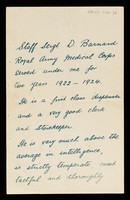 Staff Sergt D. Barnard
Royal Army Medical Corps
served under me for
two years 1922 – 1924.
He is a first class dispenser
and a very good clerk
and storekeeper.
He is very much above the
average in intelligence,
is strictly temperate and
tactful and thoroughly